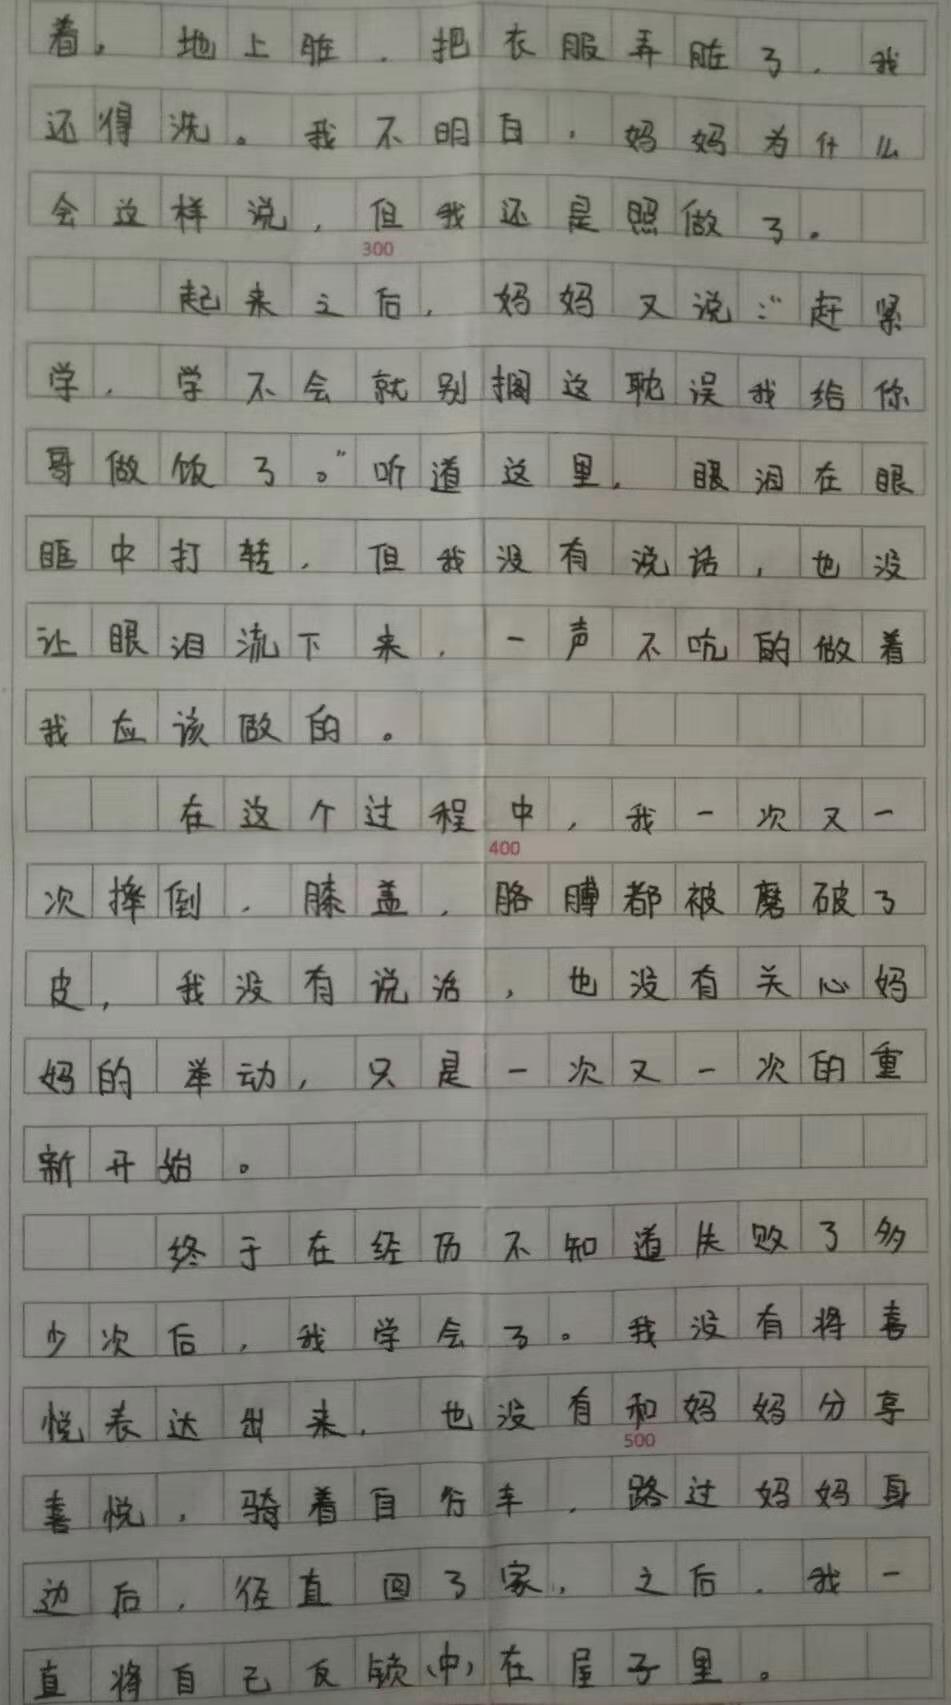 着，地上脏，把衣服弄脏了，我
还得洗。我不明白，妈妈为什么
会这样说，但我还是照做了。
300
起来之后，妈妈又说：“赶紧
学，学不会就别搁这耽误我给你
哥做饭了。”听道这里，眼泪在眼
眶中打转，但我没有说话，也没
让眼泪流下来，一声不吭的做着
我应该做的。
在这个过程中，我一次又一
400
次摔倒，膝盖，胳膊都被磨破了
皮，我没有说话，也没有关心妈
妈的举动，只是一次又一次的重
新开始。
终于在经历不知道失败了多
少次后，我学会了。我没有将喜
悦表达出来，也没有和妈妈分享
500
喜悦，骑着自行车，路过妈妈身
边后，径直回了家，之后，我一
直将自己反锁(中)在屋子里。